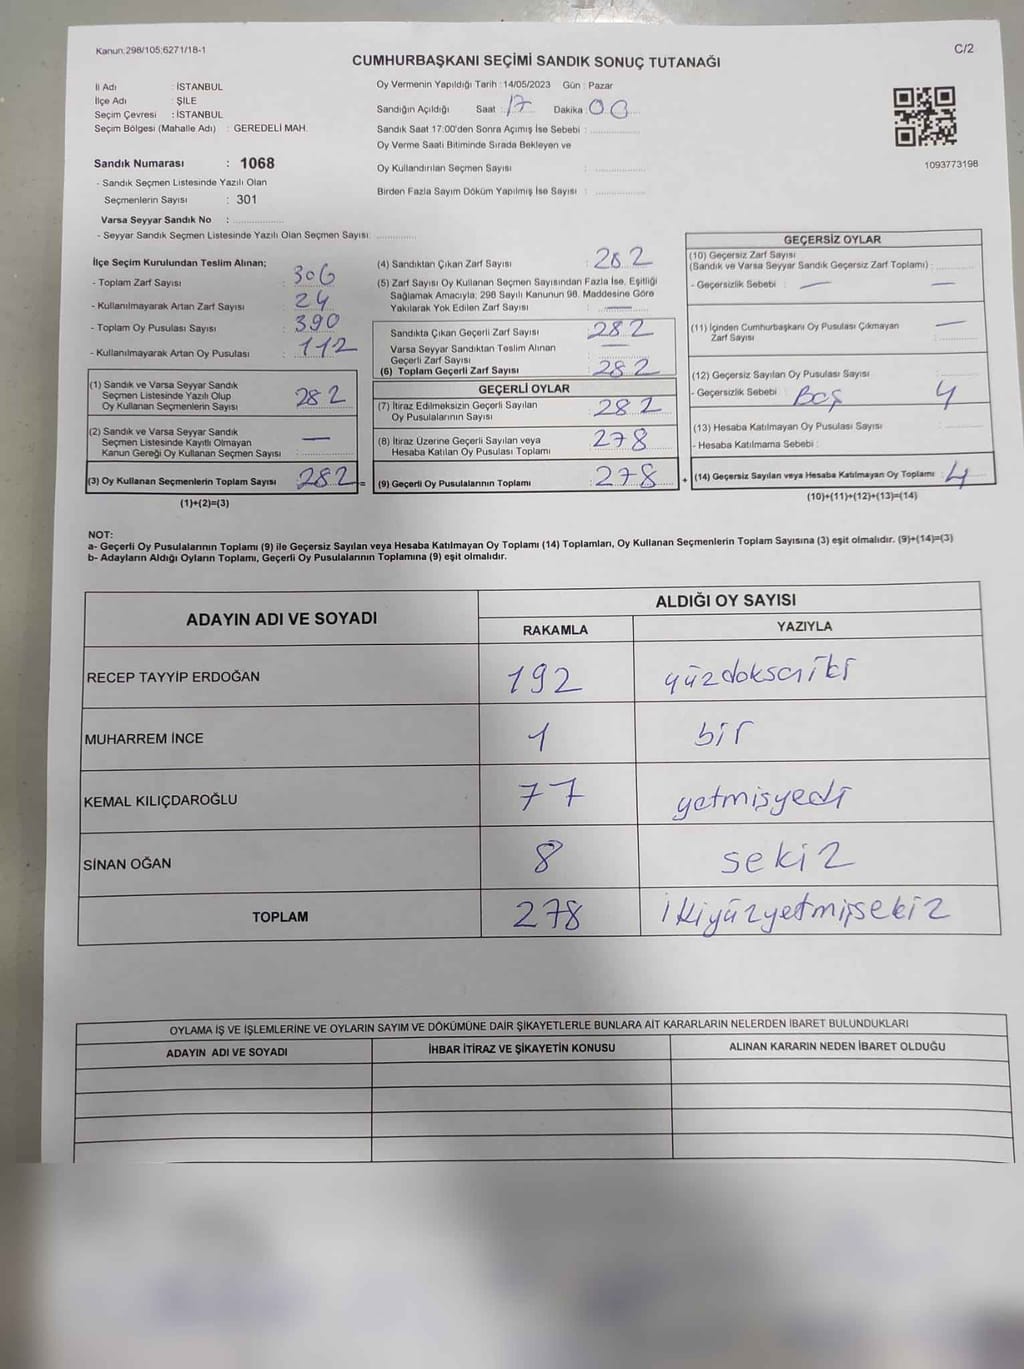 Kanun:298/105;6271/18-1
C/2
CUMHURBAŞKANI SEÇİMİ SANDIK SONUÇ TUTANAĞI
İl Adı : İSTANBUL
İlçe Adı : ŞİLE
Seçim Çevresi : İSTANBUL
Seçim Bölgesi (Mahalle Adı) : GEREDELİ MAH.
Sandık Numarası : 1068
- Sandık Seçmen Listesinde Yazılı Olan
Seçmenlerin Sayısı : 301
Varsa Seyyar Sandık No :
- Seyyar Sandık Seçmen Listesinde Yazılı Olan Seçmen Sayısı:
Oy Vermenin Yapıldığı Tarih : 14/05/2023 Gün : Pazar
Sandığın Açıldığı Saat : 17 Dakika : 00
Sandık Saat 17:00'den Sonra Açımış İse Sebebi :
Oy Verme Saati Bitiminde Sırada Bekleyen ve
Oy Kullandırılan Seçmen Sayısı :
Birden Fazla Sayım Döküm Yapılmış İse Sayısı :
1093773198
İlçe Seçim Kurulundan Teslim Alınan;
- Toplam Zarf Sayısı : 306
- Kullanılmayarak Artan Zarf Sayısı : 24
- Toplam Oy Pusulası Sayısı : 390
- Kullanılmayarak Artan Oy Pusulası : 112
(1) Sandık ve Varsa Seyyar Sandık
Seçmen Listesinde Yazılı Olup
Oy Kullanan Seçmenlerin Sayısı : 282
(2) Sandık ve Varsa Seyyar Sandık
Seçmen Listesinde Kayıtlı Olmayan
Kanun Gereği Oy Kullanan Seçmen Sayısı : —
(3) Oy Kullanan Seçmenlerin Toplam Sayısı : 282 =
(1)+(2)=(3)
(4) Sandıktan Çıkan Zarf Sayısı : 282
(5) Zarf Sayısı Oy Kullanan Seçmen Sayısından Fazla İse, Eşitliği
Sağlamak Amacıyla; 298 Sayılı Kanunun 98. Maddesine Göre
Yakılarak Yok Edilen Zarf Sayısı : —
Sandıkta Çıkan Geçerli Zarf Sayısı : 282
Varsa Seyyar Sandıktan Teslim Alınan
Geçerli Zarf Sayısı : —
(6) Toplam Geçerli Zarf Sayısı : 282
GEÇERLİ OYLAR
(7) İtiraz Edilmeksizin Geçerli Sayılan
Oy Pusulalarının Sayısı : 282
(8) İtiraz Üzerine Geçerli Sayılan veya
Hesaba Katılan Oy Pusulası Toplamı : 278
(9) Geçerli Oy Pusulalarının Toplamı : 278 +
GEÇERSİZ OYLAR
(10) Geçersiz Zarf Sayısı
(Sandık ve Varsa Seyyar Sandık Geçersiz Zarf Toplamı) :
- Geçersizlik Sebebi : — —
(11) İçinden Cumhurbaşkanı Oy Pusulası Çıkmayan
Zarf Sayısı : —
(12) Geçersiz Sayılan Oy Pusulası Sayısı :
- Geçersizlik Sebebi : Boş 4
(13) Hesaba Katılmayan Oy Pusulası Sayısı :
- Hesaba Katılmama Sebebi :
(14) Geçersiz Sayılan veya Hesaba Katılmayan Oy Toplamı : 4
(10)+(11)+(12)+(13)=(14)
NOT:
a- Geçerli Oy Pusulalarının Toplamı (9) ile Geçersiz Sayılan veya Hesaba Katılmayan Oy Toplamı (14) Toplamları, Oy Kullanan Seçmenlerin Toplam Sayısına (3) eşit olmalıdır. (9)+(14)=(3)
b- Adayların Aldığı Oyların Toplamı, Geçerli Oy Pusulalarının Toplamına (9) eşit olmalıdır.
ADAYIN ADI VE SOYADI ALDIĞI OY SAYISI
RAKAMLA YAZIYLA
RECEP TAYYİP ERDOĞAN 192 yüzdoksaniki
MUHARREM İNCE 1 bir
KEMAL KILIÇDAROĞLU 77 yetmişyedi
SİNAN OĞAN 8 sekiz
TOPLAM 278 ikiyüzyetmişsekiz
OYLAMA İŞ VE İŞLEMLERİNE VE OYLARIN SAYIM VE DÖKÜMÜNE DAİR ŞİKAYETLERLE BUNLARA AİT KARARLARIN NELERDEN İBARET BULUNDUKLARI
ADAYIN ADI VE SOYADI İHBAR İTİRAZ VE ŞİKAYETİN KONUSU ALINAN KARARIN NEDEN İBARET OLDUĞU